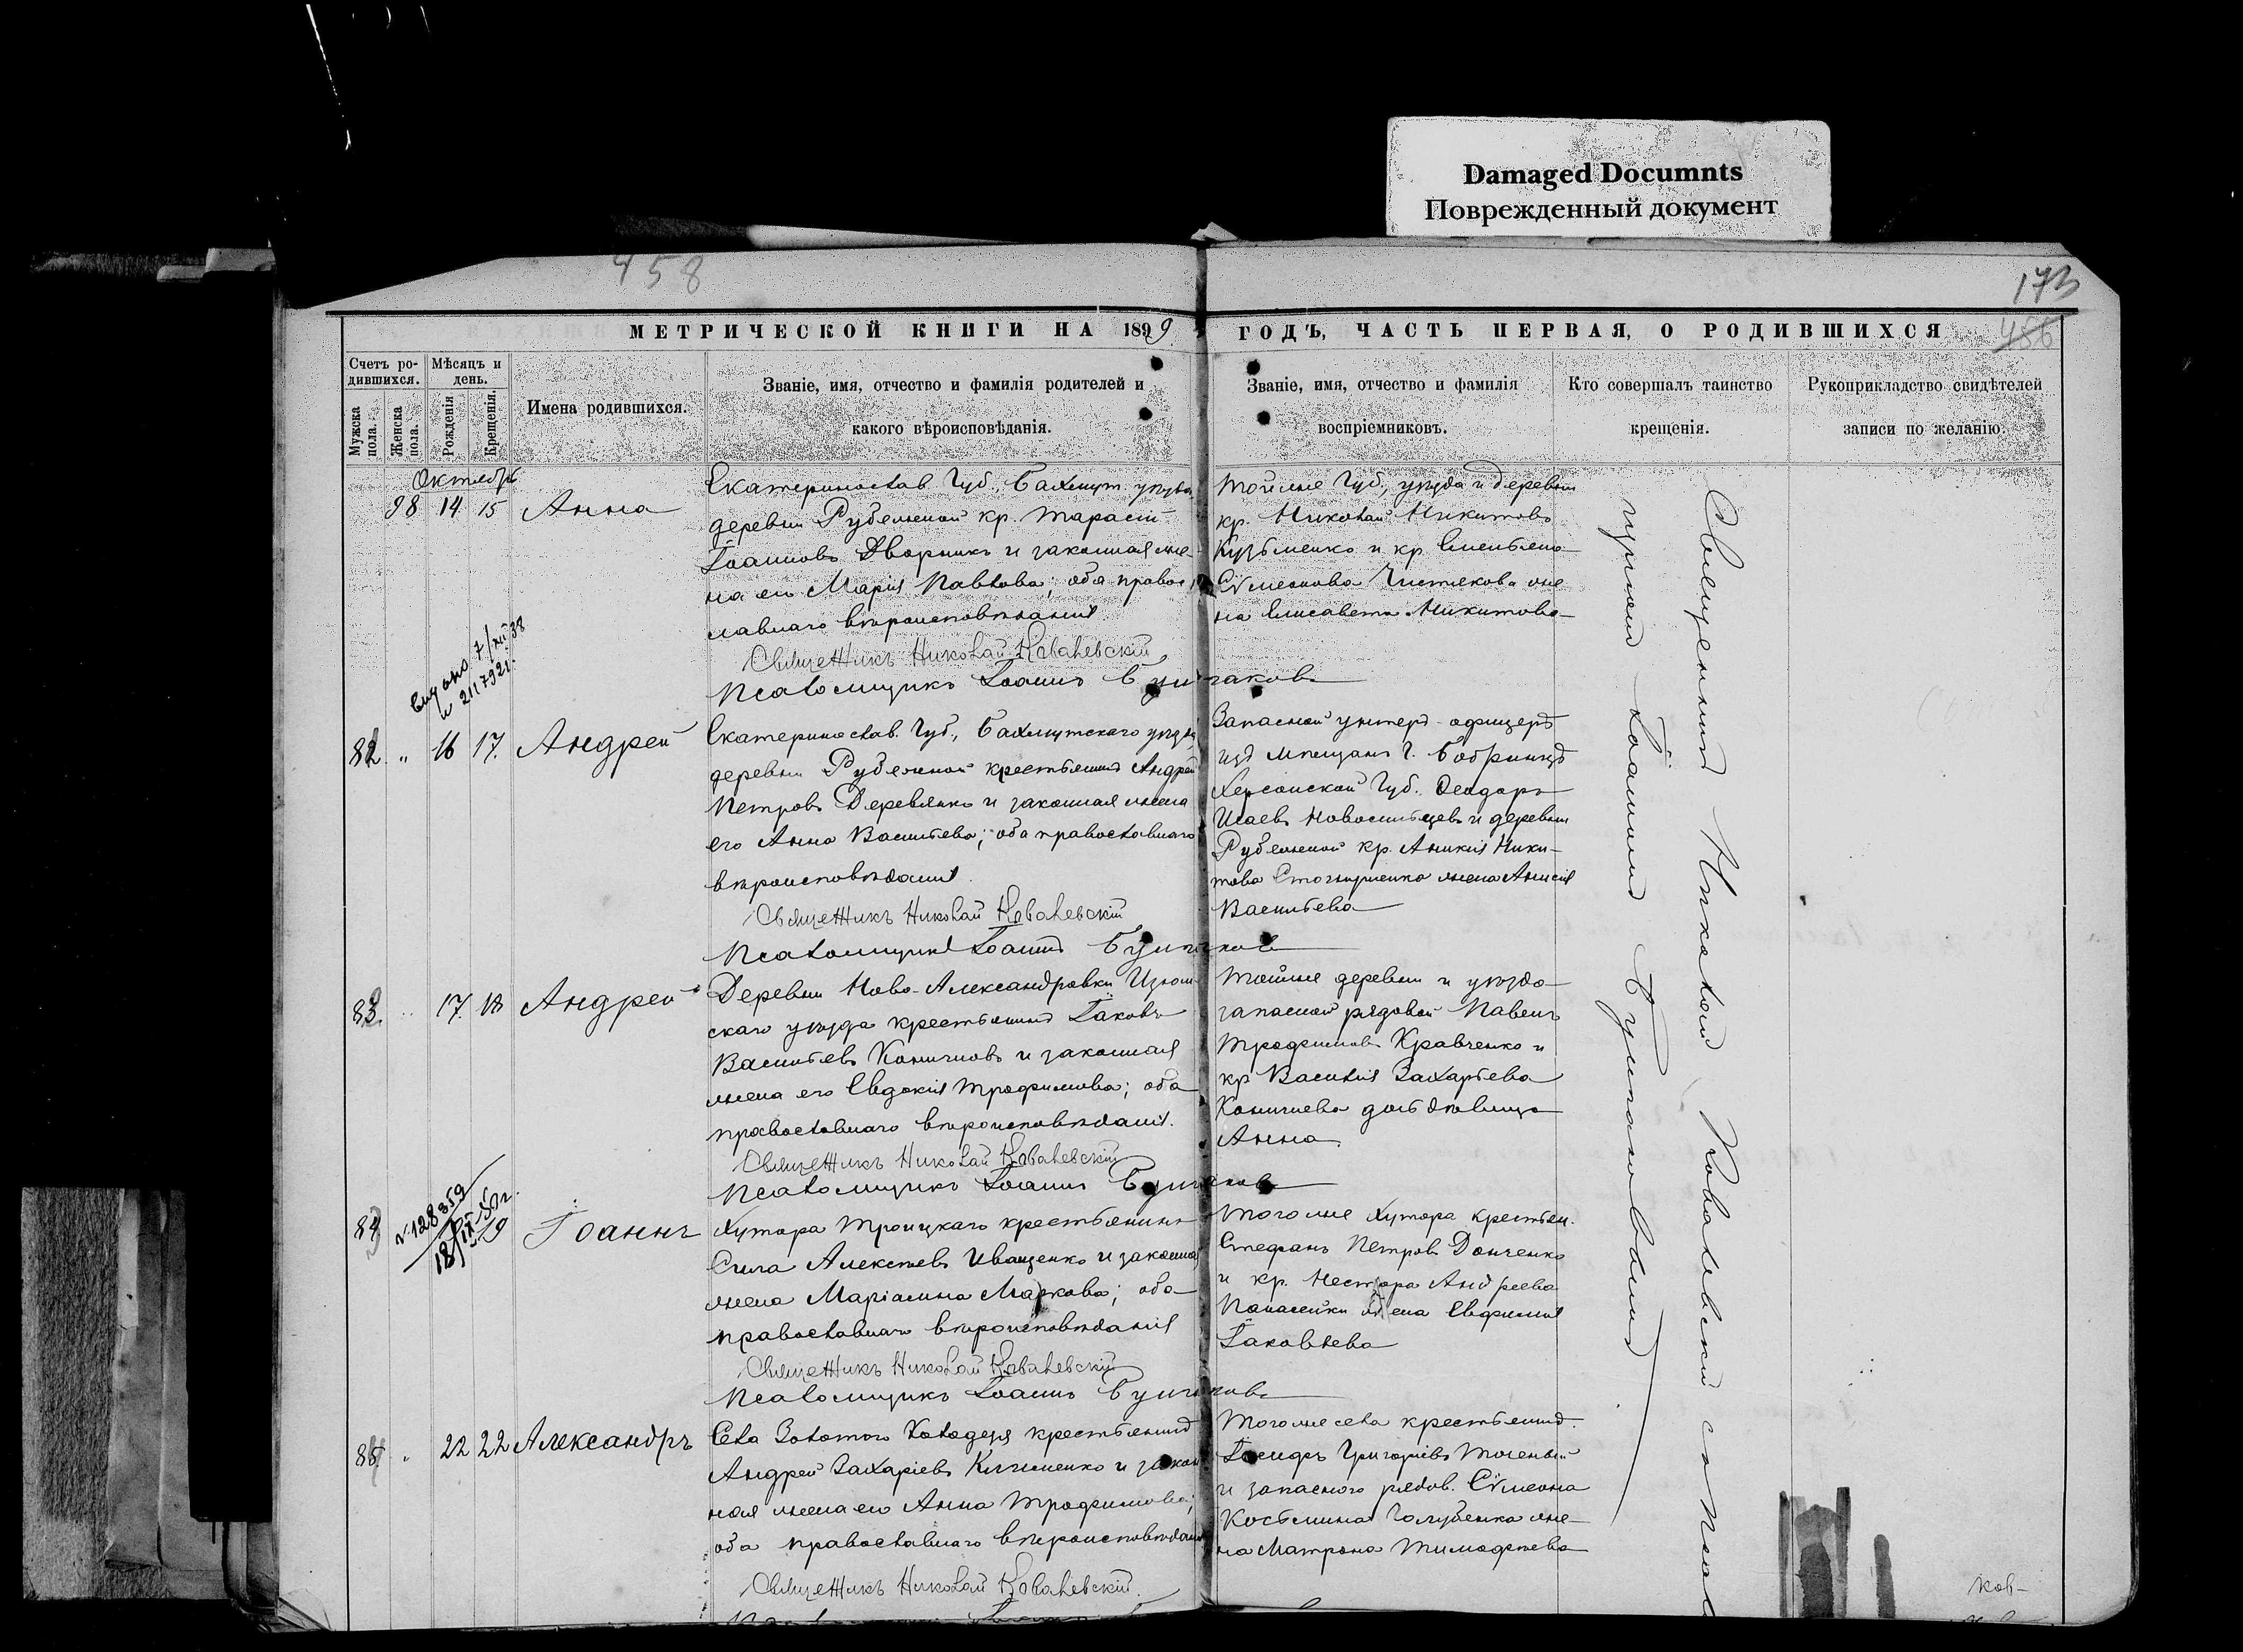 Damaged Documnts
Поврежденный документ
458
173
МЕТРИЧЕСКОЙ КНИГИ НА 1899
ГОДЪ, ЧАСТЬ ПЕРВАЯ, О РОДИВШИХСЯ
456
Счетъ ро-
дившихся.
Мѣсяцъ и
день.
Мужска
пола.
Женска
пола.
Рожденія
Крещенія.
Имена родившихся.
Званіе, имя, отчество и фамилія родителей и
какого вѣроисповѣданія.
Званіе, имя, отчество и фамилія
воспріемниковъ.
Кто совершалъ таинство
крещенія.
Рукоприкладство свидѣтелей
записи по желанію.
Октябрь
98 14 15 Анна
Екатеринослав Губ., Бахмут. уѣзда
деревни Рубежной кр. Тарасій
Іоанновъ Дворникъ и законная же-
на его Марія Павлова; оба правос-
лавнаго вѣроисповѣданія.
Священникъ Николай Ковалевскій
Псаломщикъ Іоаннъ
Тойже Губ., уѣзда и деревни
кр. Николай Никитовъ
Кузьменко и кр. Емельяна
Сѵмеонова Чистякова же-
на Елисавета Никитова
82 " 16 17. Андрей
Екатеринослав. Губ., Бахмутскаго уѣзда,
деревни Рубежной крестьянинъ Андрей
Петровъ Деревянко и законная жена
его Анна Васильева; оба православнаго
вѣроисповѣданія.
Священникъ Николай Ковалевскій
Псаломщикъ Іоаннъ
Запасной унтеръ-офицеръ
изъ мѣщанъ г. Бобринца
Херсонской Губ. Ѳеодоръ
Исаевъ Новосильцевъ и деревни
Рубежной кр. Аникія Ники-
това жена Анисія
Васильева
83. " 17. 18 Андрей
Деревни Ново-Александровки Изюм-
скаго уѣзда крестьянинъ Іаковъ
Васильевъ и законная
жена его Евдокія Трофимова; оба
православнаго вѣроисповѣданія.
Священникъ Николай Ковалевскій
Псаломщикъ Іоаннъ
Тойже деревни и уѣзда
запасной рядовой Павелъ
Трофимовъ Кравченко и
кр Василія Захарьева
дочь дѣвица
Анна.
№ 128359
Іоаннъ
Хутора Троицкаго крестьянинъ
Сила Алексѣевъ Иващенко и законная
жена Маріамна Маркова; оба
православнаго вѣроисповѣданія
Священникъ Николай Ковалевскій
Псаломщикъ Іоаннъ
Того же хутора крестьян.
Стефанъ Петровъ Донченко
и кр. Нестора Андреева
жена Евфимія
Іаковлева
22 22 Александръ
Села Золотого Колодезя крестьянинъ
Андрей Захаріевъ Клименко и закон
ная жена его Анна Трофимова;
оба православнаго вѣроисповѣданія
Священникъ Николай Ковалевскій.
Того же села крестьянинъ
Іосифъ Григоріевъ
и запасного рядов. Сѵмеона
Голубенка же-
на Матрона Тимофѣева
Священникъ Николай Ковалевскій